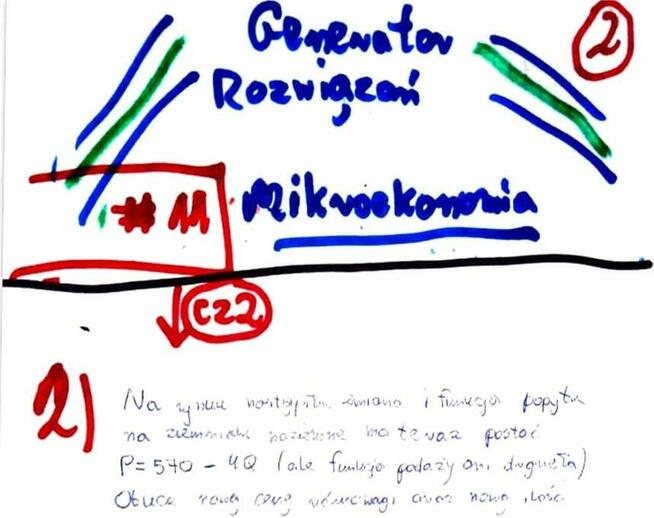 Generator
Rozwiązań
2
#11
Mikroekonomia
cz2
2)
Na rynku nastąpiła zmiana i funkcja popytu
na ziemniaki ma teraz postać
P=570-4Q (ale funkcja podaży ani drgnęła)
Oblicz nową cenę równowagi oraz nową ilość